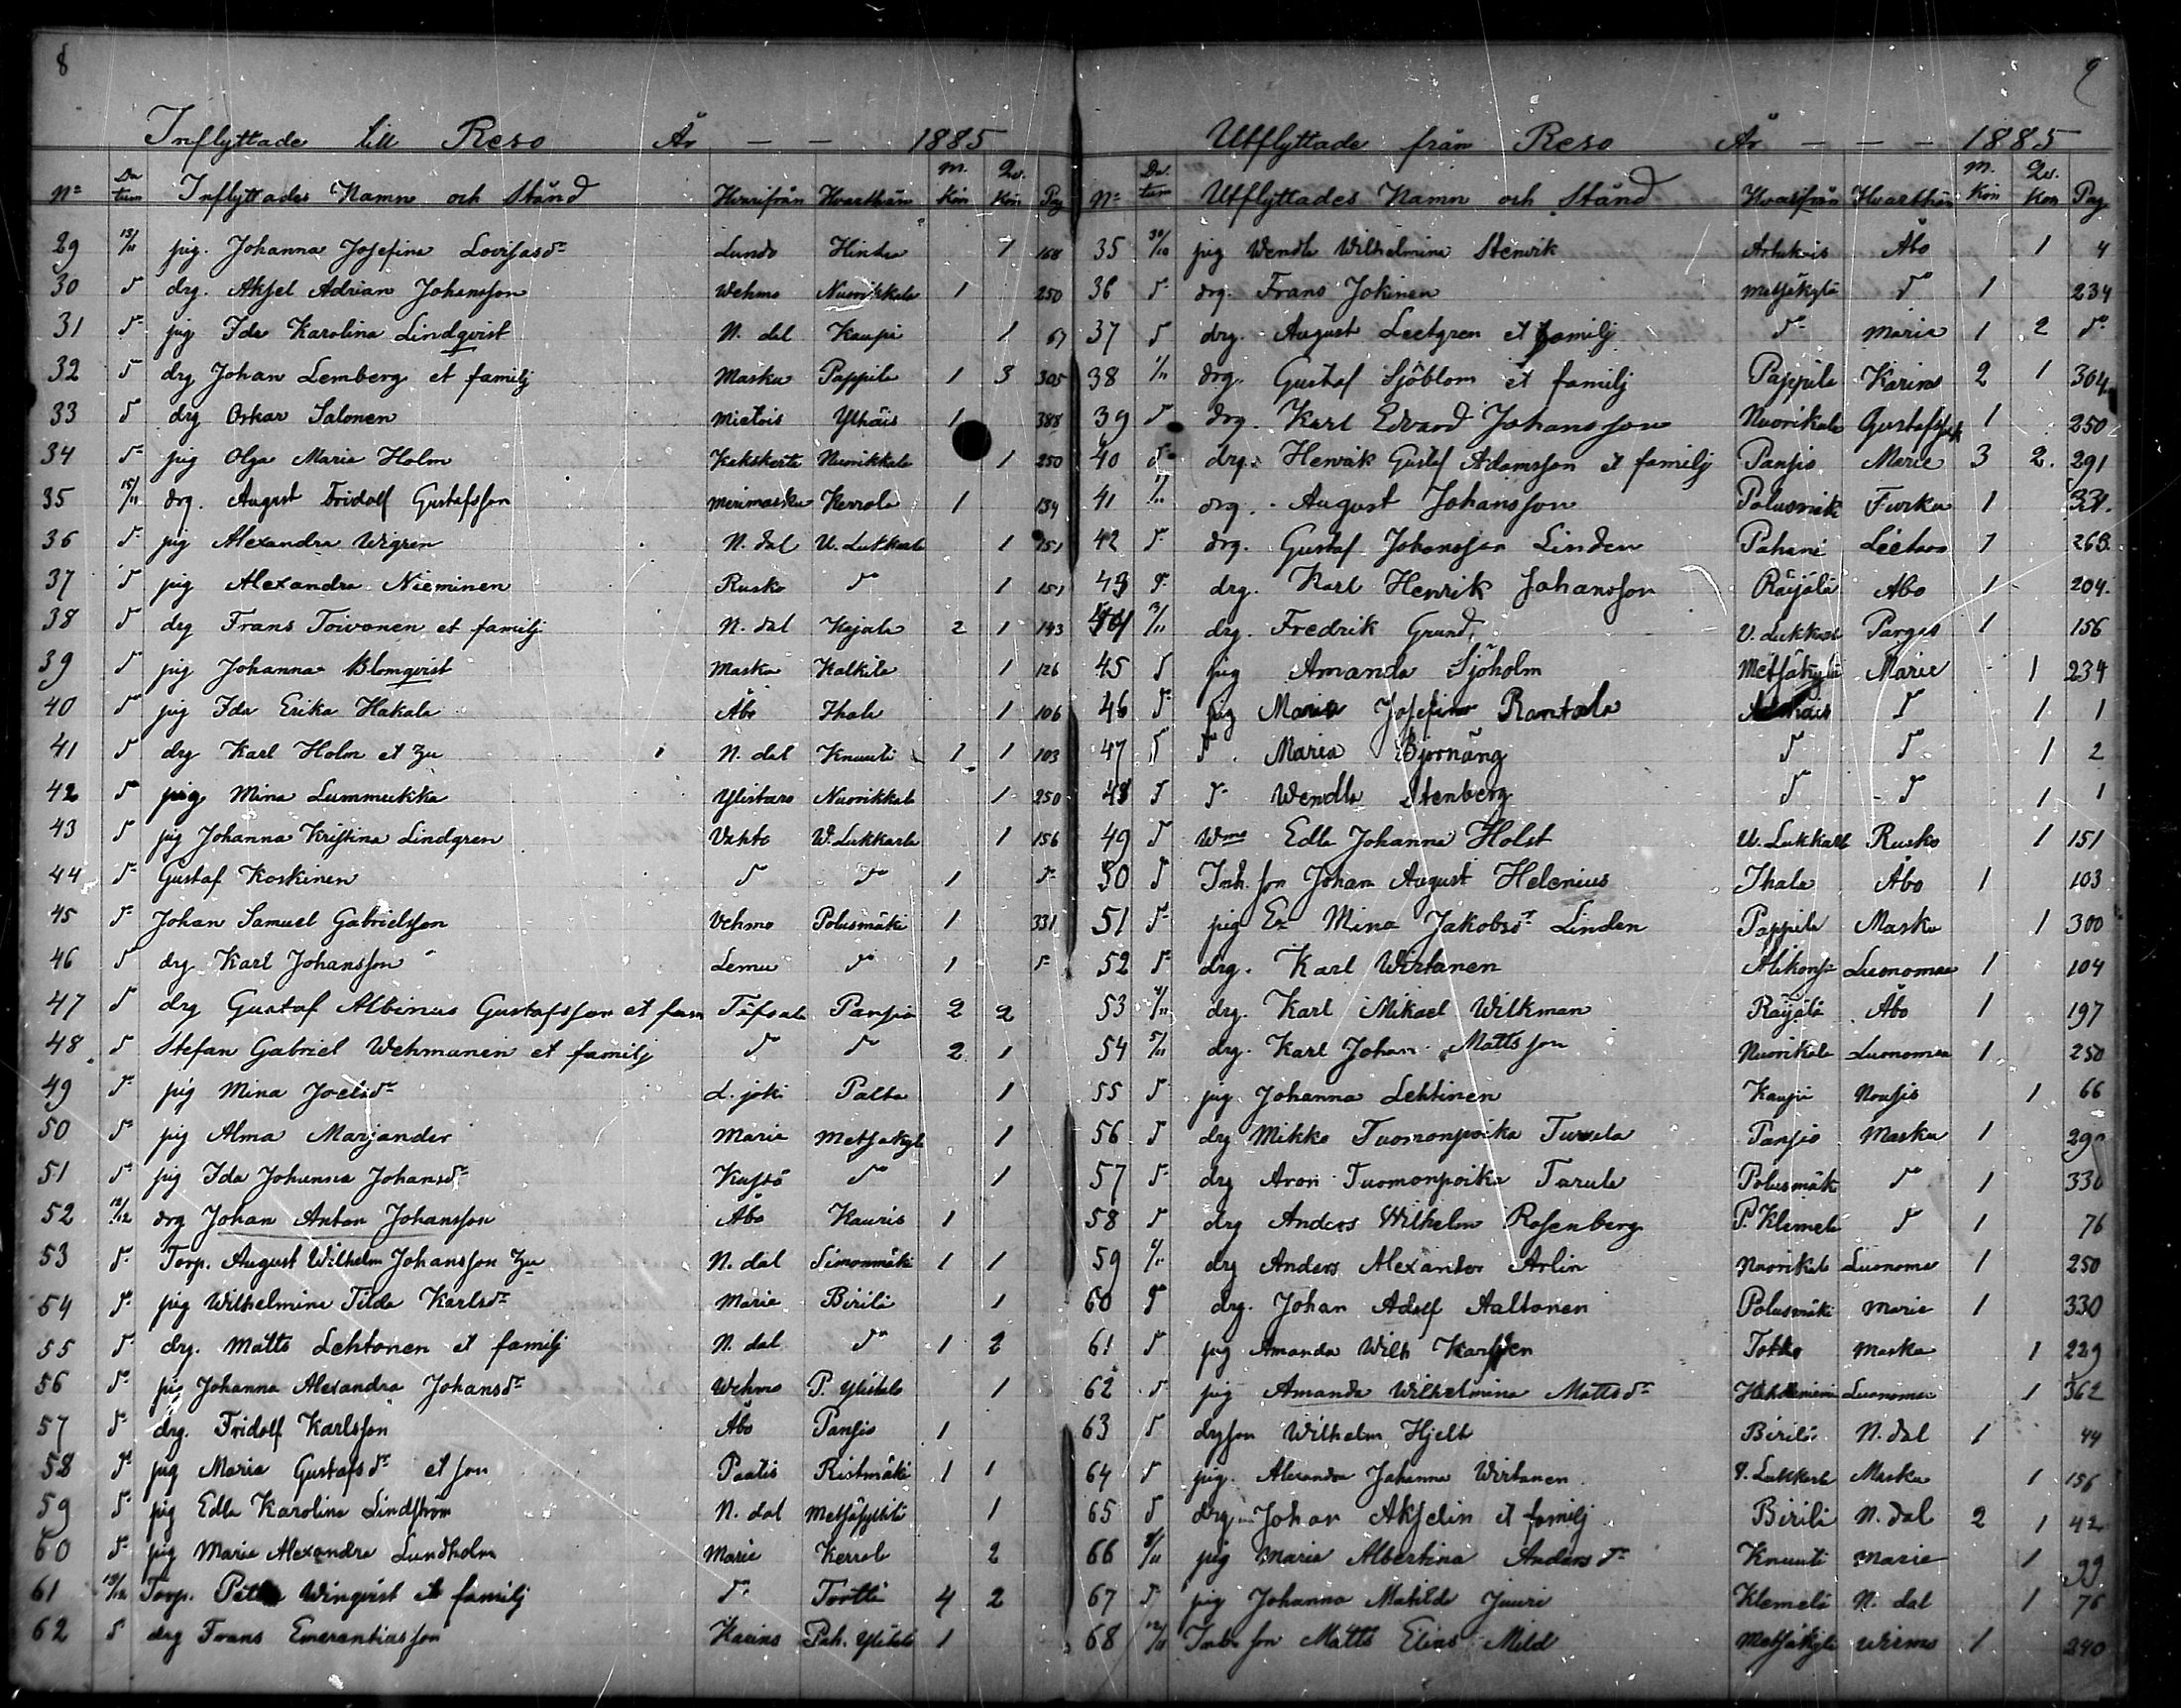 8
Inflyttade till Reso År — — 1885
Nº Datum Inflyttades Namn och Stånd Hvarifrån Hvarthän M. Kön Qv. Kön Pag
29 13/11 pig. Johanna Josefina Lovisasdr Lundo Hintsa 1 168
30 dº drg. Aksel Adrian Johansson Wehmo Nuorikkala 1 250
31 dº pig Ida Karolina Lindqvist N. dal Kaupi 1 67
32 dº drg Johan Lemberg et familj Masku Pappila 1 3 305
33 dº drg Oskar Salonen Mietois Ylhäis 1 388
34 dº pig Olga Maria Holm Kakskerta Nuorikkala 1 250
35 15/11 drg. August Fridolf Gustafsson Merimasku Kerrola 1 134
36 dº pig Alexandra Wigren N. dal U. Lukkarla 1 151
37 dº pig Alexandra Nieminen Rusko dº 1 151
38 dº drg Frans Toivonen et familj N. dal Kajala 2 1 143
39 dº pig Johanna Blomqvist Masku Kalkila 1 126
40 dº pig Ida Erika Hakala Åbo Ihala 1 106
41 dº drg Karl Holm et hu N. dal Knuuti 1 1 103
42 dº pig Mina Lummukka Ylistaro Nuorikkala 1 250
43 dº pig Johanna Kristina Lindgren Vahto W. Lukkarla 1 156
44 dº Gustaf Koskinen dº dº 1 dº
45 dº Johan Samuel Gabrielsson Vehmo Polusmäki 1 331
46 dº drg Karl Johansson Lemu dº 1 dº
47 dº drg Gustaf Albinus Gustafsson et fam Töfsala Pansio 2 2
48 dº Stefan Gabriel Wehmanen et familj dº dº 2 1
49 dº pig Mina Joelsdr L. joki Palta 1
50 dº pig Alma Marjander Marie Metsäkylä 1
51 dº pig Ida Johanna Johansdr Kustö dº 1
52 12/12 drg Johan Anton Johansson Åbo Kauris 1
53 dº Torp. August Wilhelm Johansson hu N. dal Simonmäki 1 1
54 dº pig Wilhelmina Tilda Karlsdr Marie Birilä 1
55 dº drg. Matts Lehtonen et familj N. dal dº 1 2
56 dº pig Johanna Alexandra Johansdr Wehmo P. Ylistalo 1
57 dº drg. Fridolf Karlsson Åbo Pansio 1
58 dº pig Maria Gustafsdr et son Paatis Ristimäki 1 1
59 dº pig Edla Karolina Lindström N. dal 1
60 dº pig Maria Alexandra Lundholm Marie Kerrola 2
61 19/12 Torp. Winqvist et familj dº Tortti 4 2
62 dº drg Frans Emerentiasson Karins Pah. Ylistalo 1
9
Utflyttade från Reso År — — — 1885
Nº Datum Utflyttades Namn och Stånd Hvarifrån Hvarthän M. Kön Qv. Kön Pag
35 30/10 pig Wendla Wilhelmina Stenvik Artukais Åbo 1 4
36 dº drg. Frans Jokinen Metsäkylä dº 1 234
37 dº drg. August Leetgren et familj dº Marie 1 2 dº
38 1/11 drg. Gustaf Sjöblom et familj Pappila Karins 2 1 304
39 dº drg. Karl Edvard Johansson Nuorikala 1 250
40 dº drg. Henrik Gustaf Adamsson et familj Pansio Marie 3 2 291
41 1/11 drg. August Johansson Polusmäki Turku 1 331.
42 dº drg. Gustaf Johansson Linden Pahani Lieto 1 263
43 dº drg. Karl Henrik Johansson Räijälä Åbo 1 204.
44 3/11 drg. Fredrik Grund V. Lukkarl Pargas 1 156
45 dº pig Amanda Sjöholm Metsäkylä Marie 1 234
46 dº pig Maria Josefina Rantala Artukais dº 1 1
47 dº dº Maria Björnäng dº dº 1 2
48 dº dº Wendla Stenberg dº dº 1 1
49 dº Wma Edla Johanna Holst U. Lukkarl Rusko 1 151
50 dº Inh. son Johan August Helenius Ihala Åbo 1 103
51 dº pig Eva Mina Jakobsdr Linden Pappila Masku 1 300
52 dº drg. Karl Wirtanen Alikonsa Luonomaa 1 104
53 4/11 drg. Karl Mikael Wilkman Räijälä Åbo 1 197
54 5/11 drg. Karl Johan Mattsson Nuorikala Luonomaa 1 250
55 dº pig Johanna Lehtinen Kaupi Nousis 1 66
56 dº drg Mikko Tuomonpoika Turula Pansio Masku 1 290
57 dº drg Aron Tuomonpoika Tarula Polusmäk dº 1 330
58 dº drg Anders Wilhelm Rosenberg P. Klemela dº 1 76
59 6/11 drg Anders Alexander Arlin Nuorikala Luonoma 1 250
60 dº drg. Johan Adolf Aaltonen Polusmäki Marie 1 330
61 dº pig Amanda Wilh Karlsten Masku 1 229
62 dº pig Amanda Wilhelmina Mattsdr Luonomaa 1 362
63 dº drgson Wilhelm Hjelt Birilä N. dal 1 44
64 dº pig. Alexandra Johanna Wirtanen Y. Lukkarla Masku 1 156
65 dº drg Johan Akselin et familj Birilä N. dal 2 1 42
66 8/11 pig Maria Albertina Andersdr Knuuti Marie 1 99
67 dº pig Johanna Matilda Juuri Klemelä N. dal 1 76
68 12/11 Inh. son Matts Elias Mild Metsäkylä Wirmo 1 240